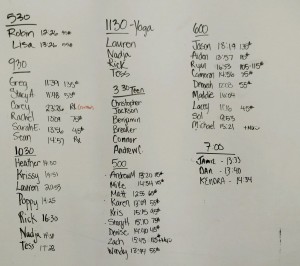 530
Robin 13:26
Lisa 13:26
930
Greg 11:39 135#
Stacy A 11:48 53#
Corey 23:26 Rx
Rachel 13:09 75#
Sarah E. 13:56 45#
Sean 14:57 Rx
1030
Heather 14:00
Krissy 19:51
Lauren 20:53
Poppy 14:25
Rick 16:30
Nadja
Tess 17:28
1130 - Yoga
Lauren
Nadja
Rick
Tess
3:30 Teen
Christopher
Jackson
Benjamin
Breaker
Connor
Andrew C.
500
Andrew M 13:20 115#
Mike 14:34 115#
Matt 12:55 65#
Karen 12:09 55#
Kris 15:25 95#
Stacy H 15:30 73#
Denise 14:40 45#
Zach 15:43
Wendy 13:49 55#
600
Jason 18:14 135#
Aidan 10:57 75#
Ryan 16:53 105-115#
Cameron 14:56 35#
Dennah 17:03 55#
Maddie 17:04
Larry 17:16 45#
Sol 9:53
Michael 15:21
7:00
JAMIE - 13:33
DAN - 13:40
KENDRA - 14:34